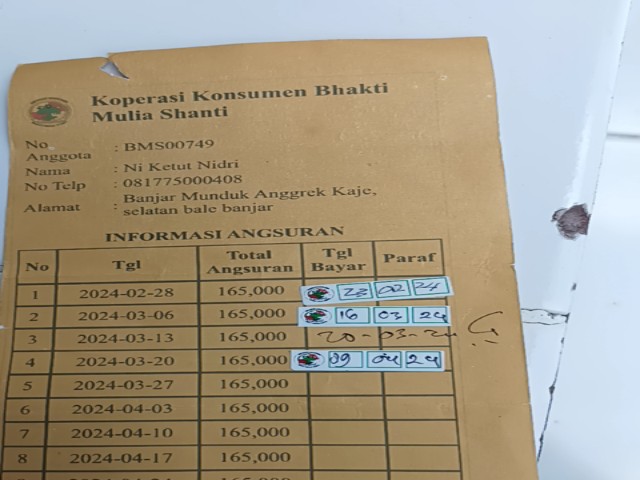 Koperasi Konsumen Bhakti
Mulia Shanti
No
Anggota : BMS00749
Nama : Ni Ketut Nidri
No Telp : 081775000408
Alamat : Banjar Munduk Anggrek Kaje,
selatan bale banjar
INFORMASI ANGSURAN
No Tgl Total Angsuran Tgl Bayar Paraf
1 2024-02-28 165,000 23 02 24
2 2024-03-06 165,000 16 03 24
3 2024-03-13 165,000 20-03-24
4 2024-03-20 165,000 09 04 24
5 2024-03-27 165,000
6 2024-04-03 165,000
7 2024-04-10 165,000
8 2024-04-17 165,000